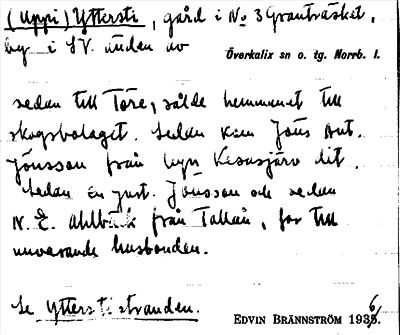 (Uppi) Yttersti, gård i No 3 Granträsket,
by i SV. änden av
Överkalix sn o. tg. Norrb. l.
sedan till Töre, sålde hemmanet till
skogsbolaget. Sedan kom Jöns Ant.
Jönsson från byn Kesasjärv dit.
Sedan En just. Jönsson och sedan
N. E. Ahlbäck från Tallån, far till
nuvarande husbonden.
Se Ytterstistranden.
EDVIN BRÄNNSTRÖM 1936.